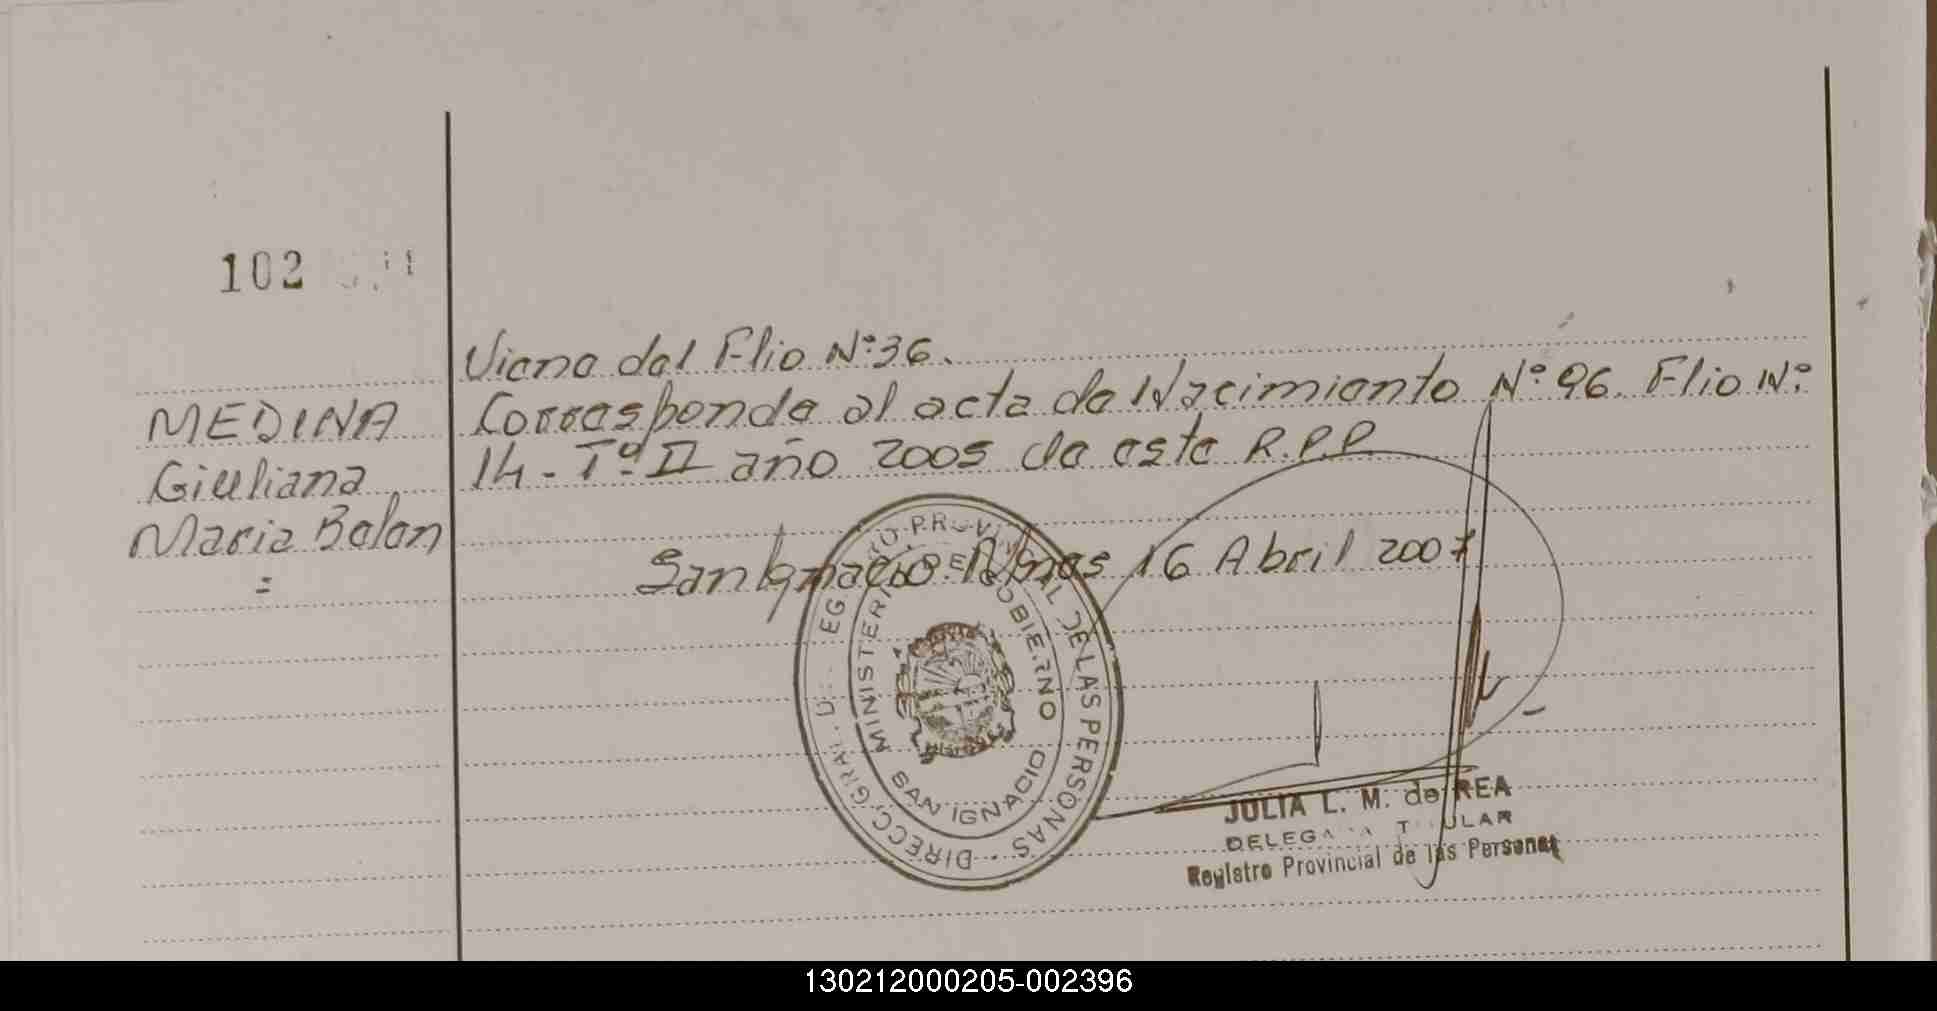 102
Viene del Flio Nº36.
MEDINA Corresponde al acta de Nacimiento Nº 96. Flio Nº
Giuliana 14- Tº II año 2005 de este R.P.P
Maria Belen
=
San Ignacio. Mnes 16 Abril 2007
MINISTERIO DE GOBIERNO
SAN IGNACIO
DE LAS PERSONAS
JULIA L. M. de REA
Registro Provincial de las Personas
130212000205-002396